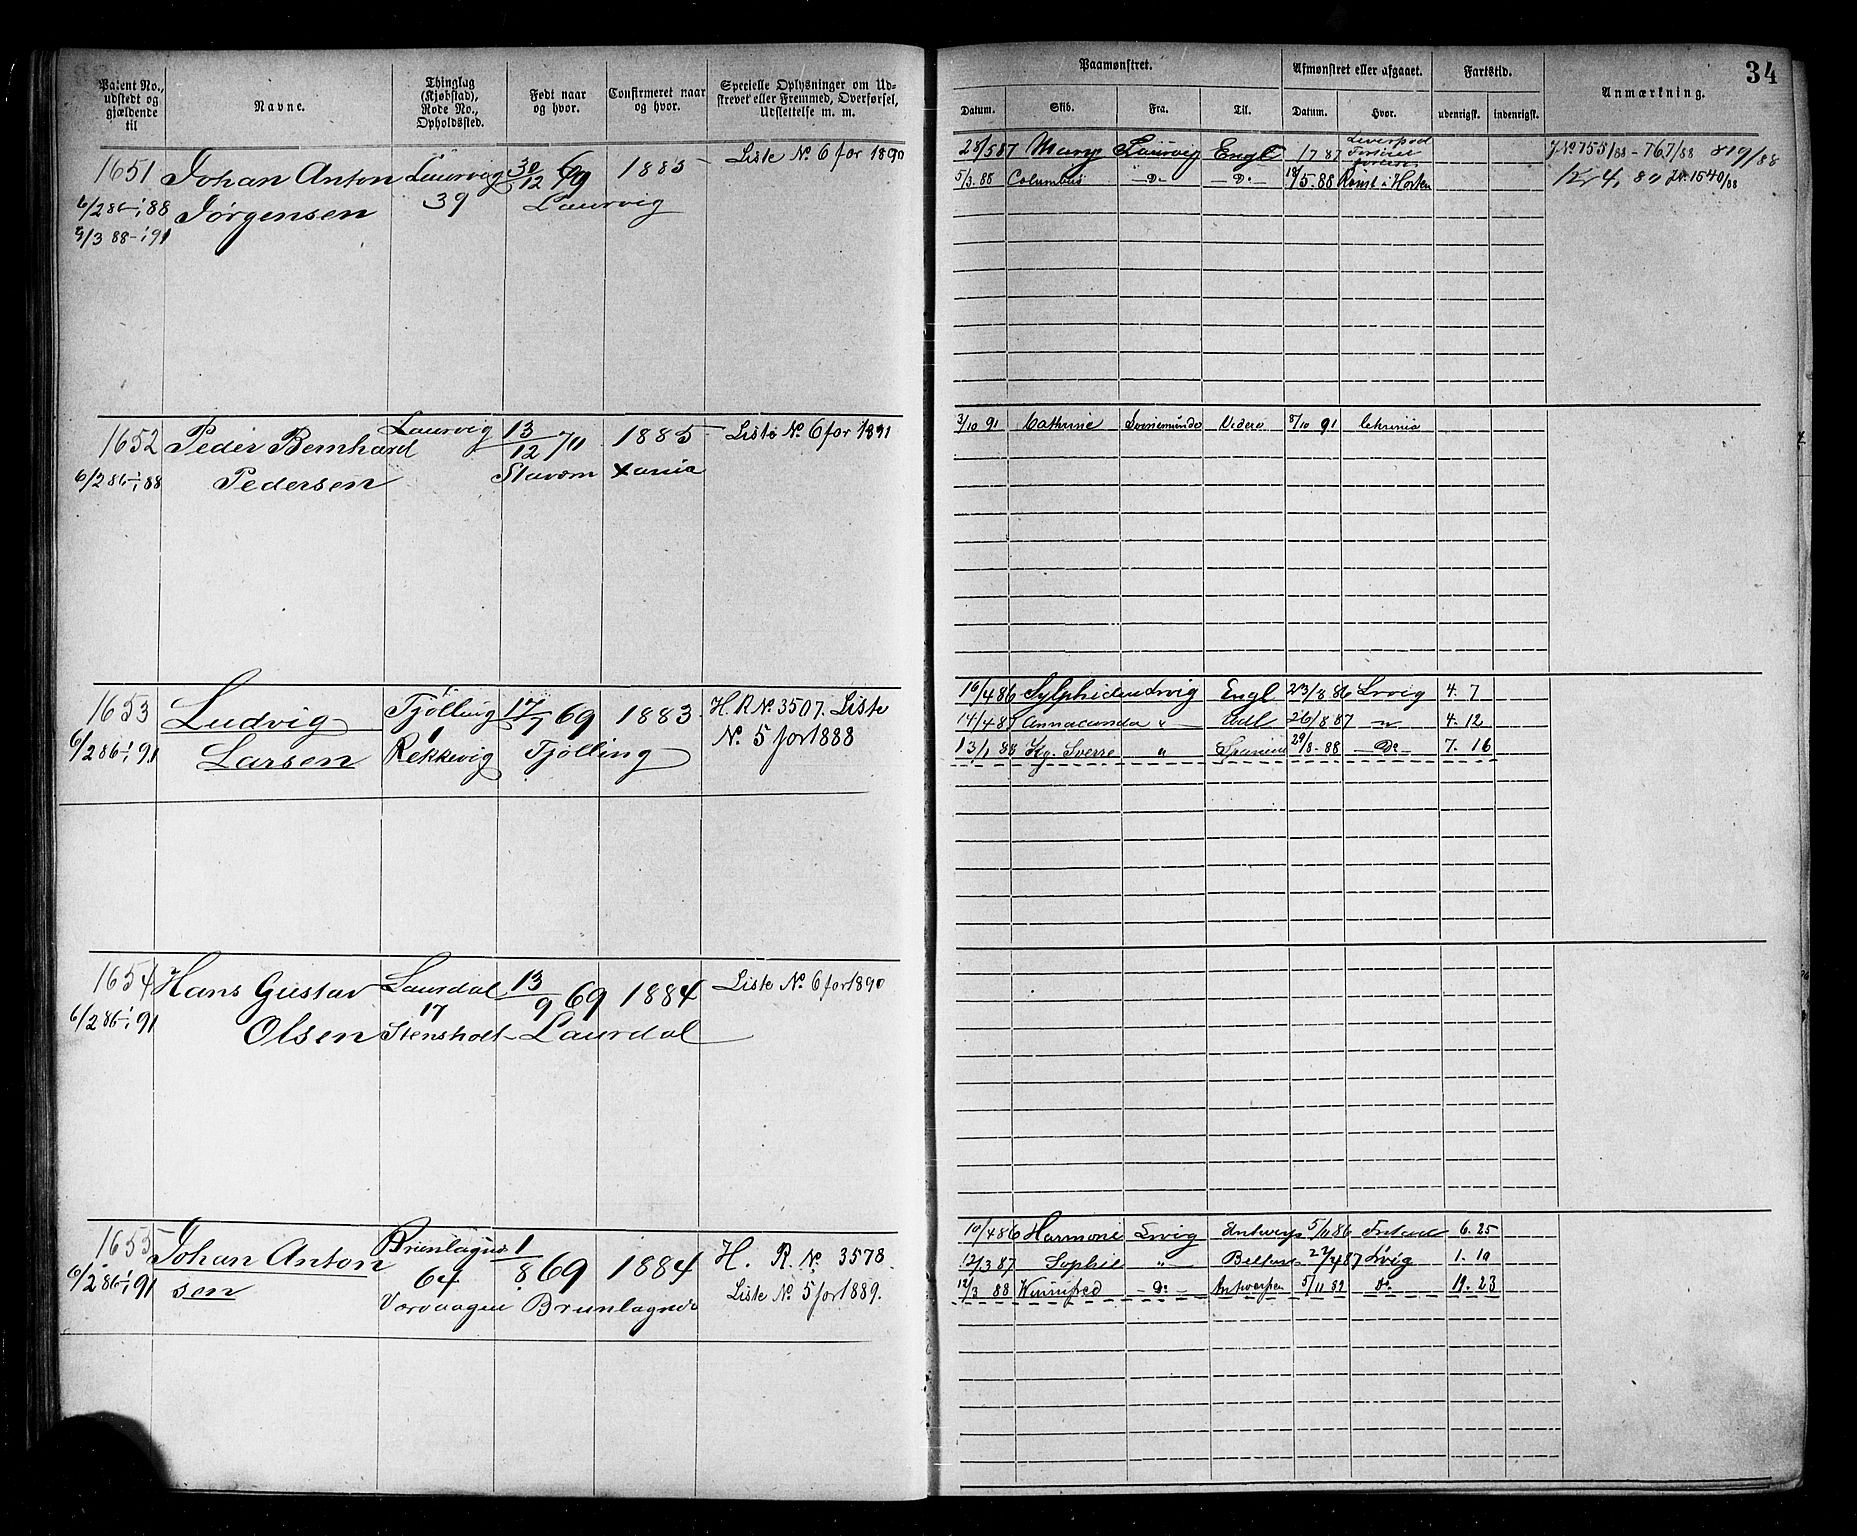 34
Patent No., udstedt og gjældende til
Navne.
Thinglag (Kjøbstad), Rode No., Opholdssted.
Født naar og hvor.
Confirmeret naar og hvor.
Specielle Oplysninger om Udskrevet eller Fremmed, Overførsel, Udslettelse m. m.
Paamønstret.
Afmønstret eller afgaaet.
Fartstid.
Anmærkning.
Datum. Skib. Fra. Til. Datum. Hvor. udenrigsk. indenrigsk.
1651 Johan Anton Laurvig 30/12 69 1885 Liste No. 6 for 1890
6/2 86 - 1/1 88 Jørgensen 39 Laurvig
5/3 88 - 1/1 91
28/5 87 Mary Laurvig Engl 1 7 87 Liverpool
5/3. 88 Columbus - Do - - Do - 18/5. 88 Rømt i Horten
J No 755/88 - 767/88 819/88
Kr 4, 80 1540/88
1652 Peder Bernhard Laurvig 13/12 70 1885 Liste No. 6 for 1891
6/2 86 - 1/1 88 Pedersen Staværn Xania
3/10 91 Cathrine Svinemünde 8/10 91 Chrinia
1653 Ludvig Tjølling 17/7 69 1883 H. R No. 3507. Liste
6/2 86 - 1/1 91 Larsen 1 Rekkevig Tjølling No. 5 for 1888
16/4 86 Sylphiden Lrvig Engl 23/8 86 Lrvig 4. 7
14/4 87 Annacunda " 26/8 87 " 4. 12
13/1 88 Kg. Sverre " 29/8 - 88 - Do - 7. 16
1654 Hans Gustav Laurdal 13/9 69 1884 Liste No. 6 for 1890
6/2 86 - 1/1 91 Olsen 17 Stensholt Laurdal
1655 Johan Anton Brunlagnæs 1/8 69 1884 H. R. No. 3578.
6/2 86 - 1/1 91 sen 64 Brunlagnæs Liste No. 5 for 1889.
10/4 86 Harmonie Lrvig Antwerp 86 6. 25
12/3 87 Sophie " Belfast 27/4 87 Lrvig 1. 10
12/3 88 Winnifred - Do - Antwerpen 5/11 89 Do 19. 23